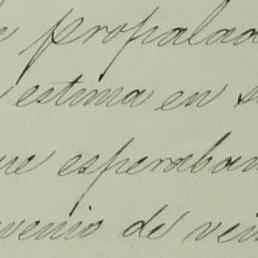 e propalad
estima en s
ue esperaban
venio de vein